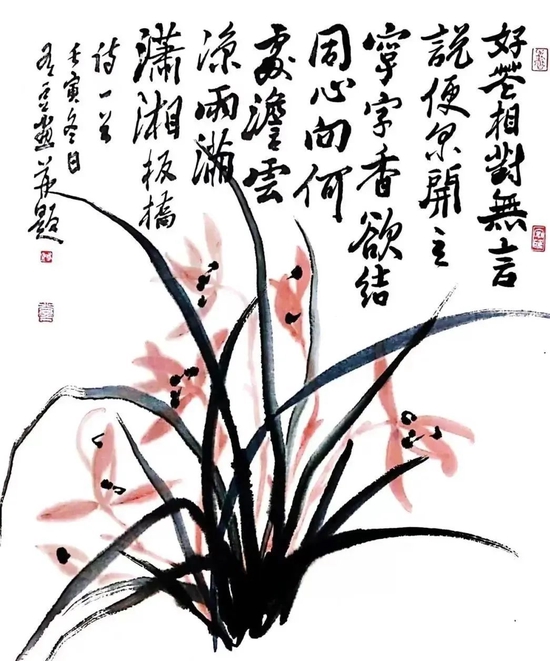 好花相對無言
說便開之
寧字香欲結
同心向何
處澹雲
涼雨滿
瀟湘板橋
詩一首
壬寅冬日
畫并題